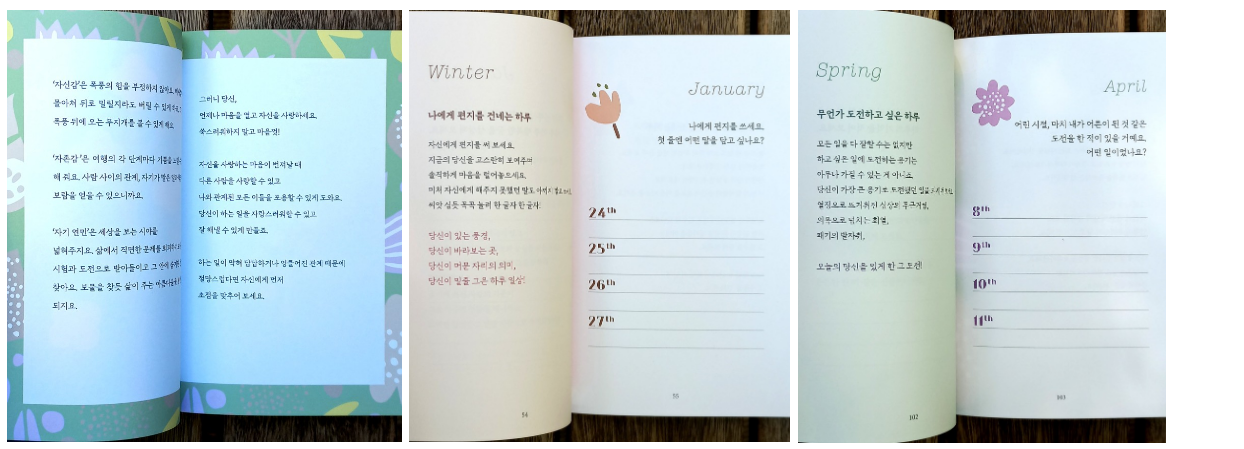 '자신감'은 폭풍의 힘을 부정하지 않아요.
몰아쳐 뒤로 밀릴지라도 버틸 수 있게
폭풍 뒤에 오는 무지개를 볼 수 있게 해요.
'자존감'은 여행의 각 단계마다 기쁨을
해 줘요. 사람 사이의 관계, 자기가 맡은
보람을 얻을 수 있으니까요.
'자기 연민'은 세상을 보는 시야를
넓혀주지요. 삶에서 직면한 문제를
시험과 도전으로 받아들이고 그 안에
찾아요. 보물을 찾듯 삶이 주는
되지요.
그러니 당신,
언제나 마음을 열고 자신을 사랑하세요.
쑥스러워하지 말고 마음껏!
자신을 사랑하는 마음이 번져날 때
다른 사람을 사랑할 수 있고
나와 관계된 모든 이들을 포용할 수 있게 도와요.
당신이 하는 일을 사랑스러워할 수 있고
잘 해낼 수 있게 만들죠.
하는 일이 막혀 답답하거나 엉클어진 관계 때문에
절망스럽다면 자신에게 먼저
초점을 맞추어 보세요.
Winter
나에게 편지를 건네는 하루
자신에게 편지를 써 보세요.
지금의 당신을 고스란히 보여주며
솔직하게 마음을 털어놓으세요.
미처 자신에게 해주지 못했던 말도
씨앗 심듯 꼭꼭 눌러 한 글자 한 글자.
당신이 있는 풍경,
당신이 바라보는 곳,
당신이 머문 자리의 의미,
당신이 밑줄 그은 하루 일상!
54
January
나에게 편지를 쓰세요.
첫 줄엔 어떤 말을 담고 싶나요?
24th
25th
26th
27th
55
Spring
무언가 도전하고 싶은 하루
모든 일을 다 잘할 수는 없지만
하고 싶은 일에 도전하는 용기는
아무나 가질 수 있는 게 아니죠.
당신이 가장 큰 용기로 도전했던 일을
열정으로 뜨거워진 심장의 두근거림,
의욕으로 넘치는 희열,
패기의 발자취,
오늘의 당신을 있게 한 그 도전!
102
April
어린 시절, 마치 내가 어른이 된 것 같은
도전을 한 적이 있을 거예요.
어떤 일이었나요?
8th
9th
10th
11th
103